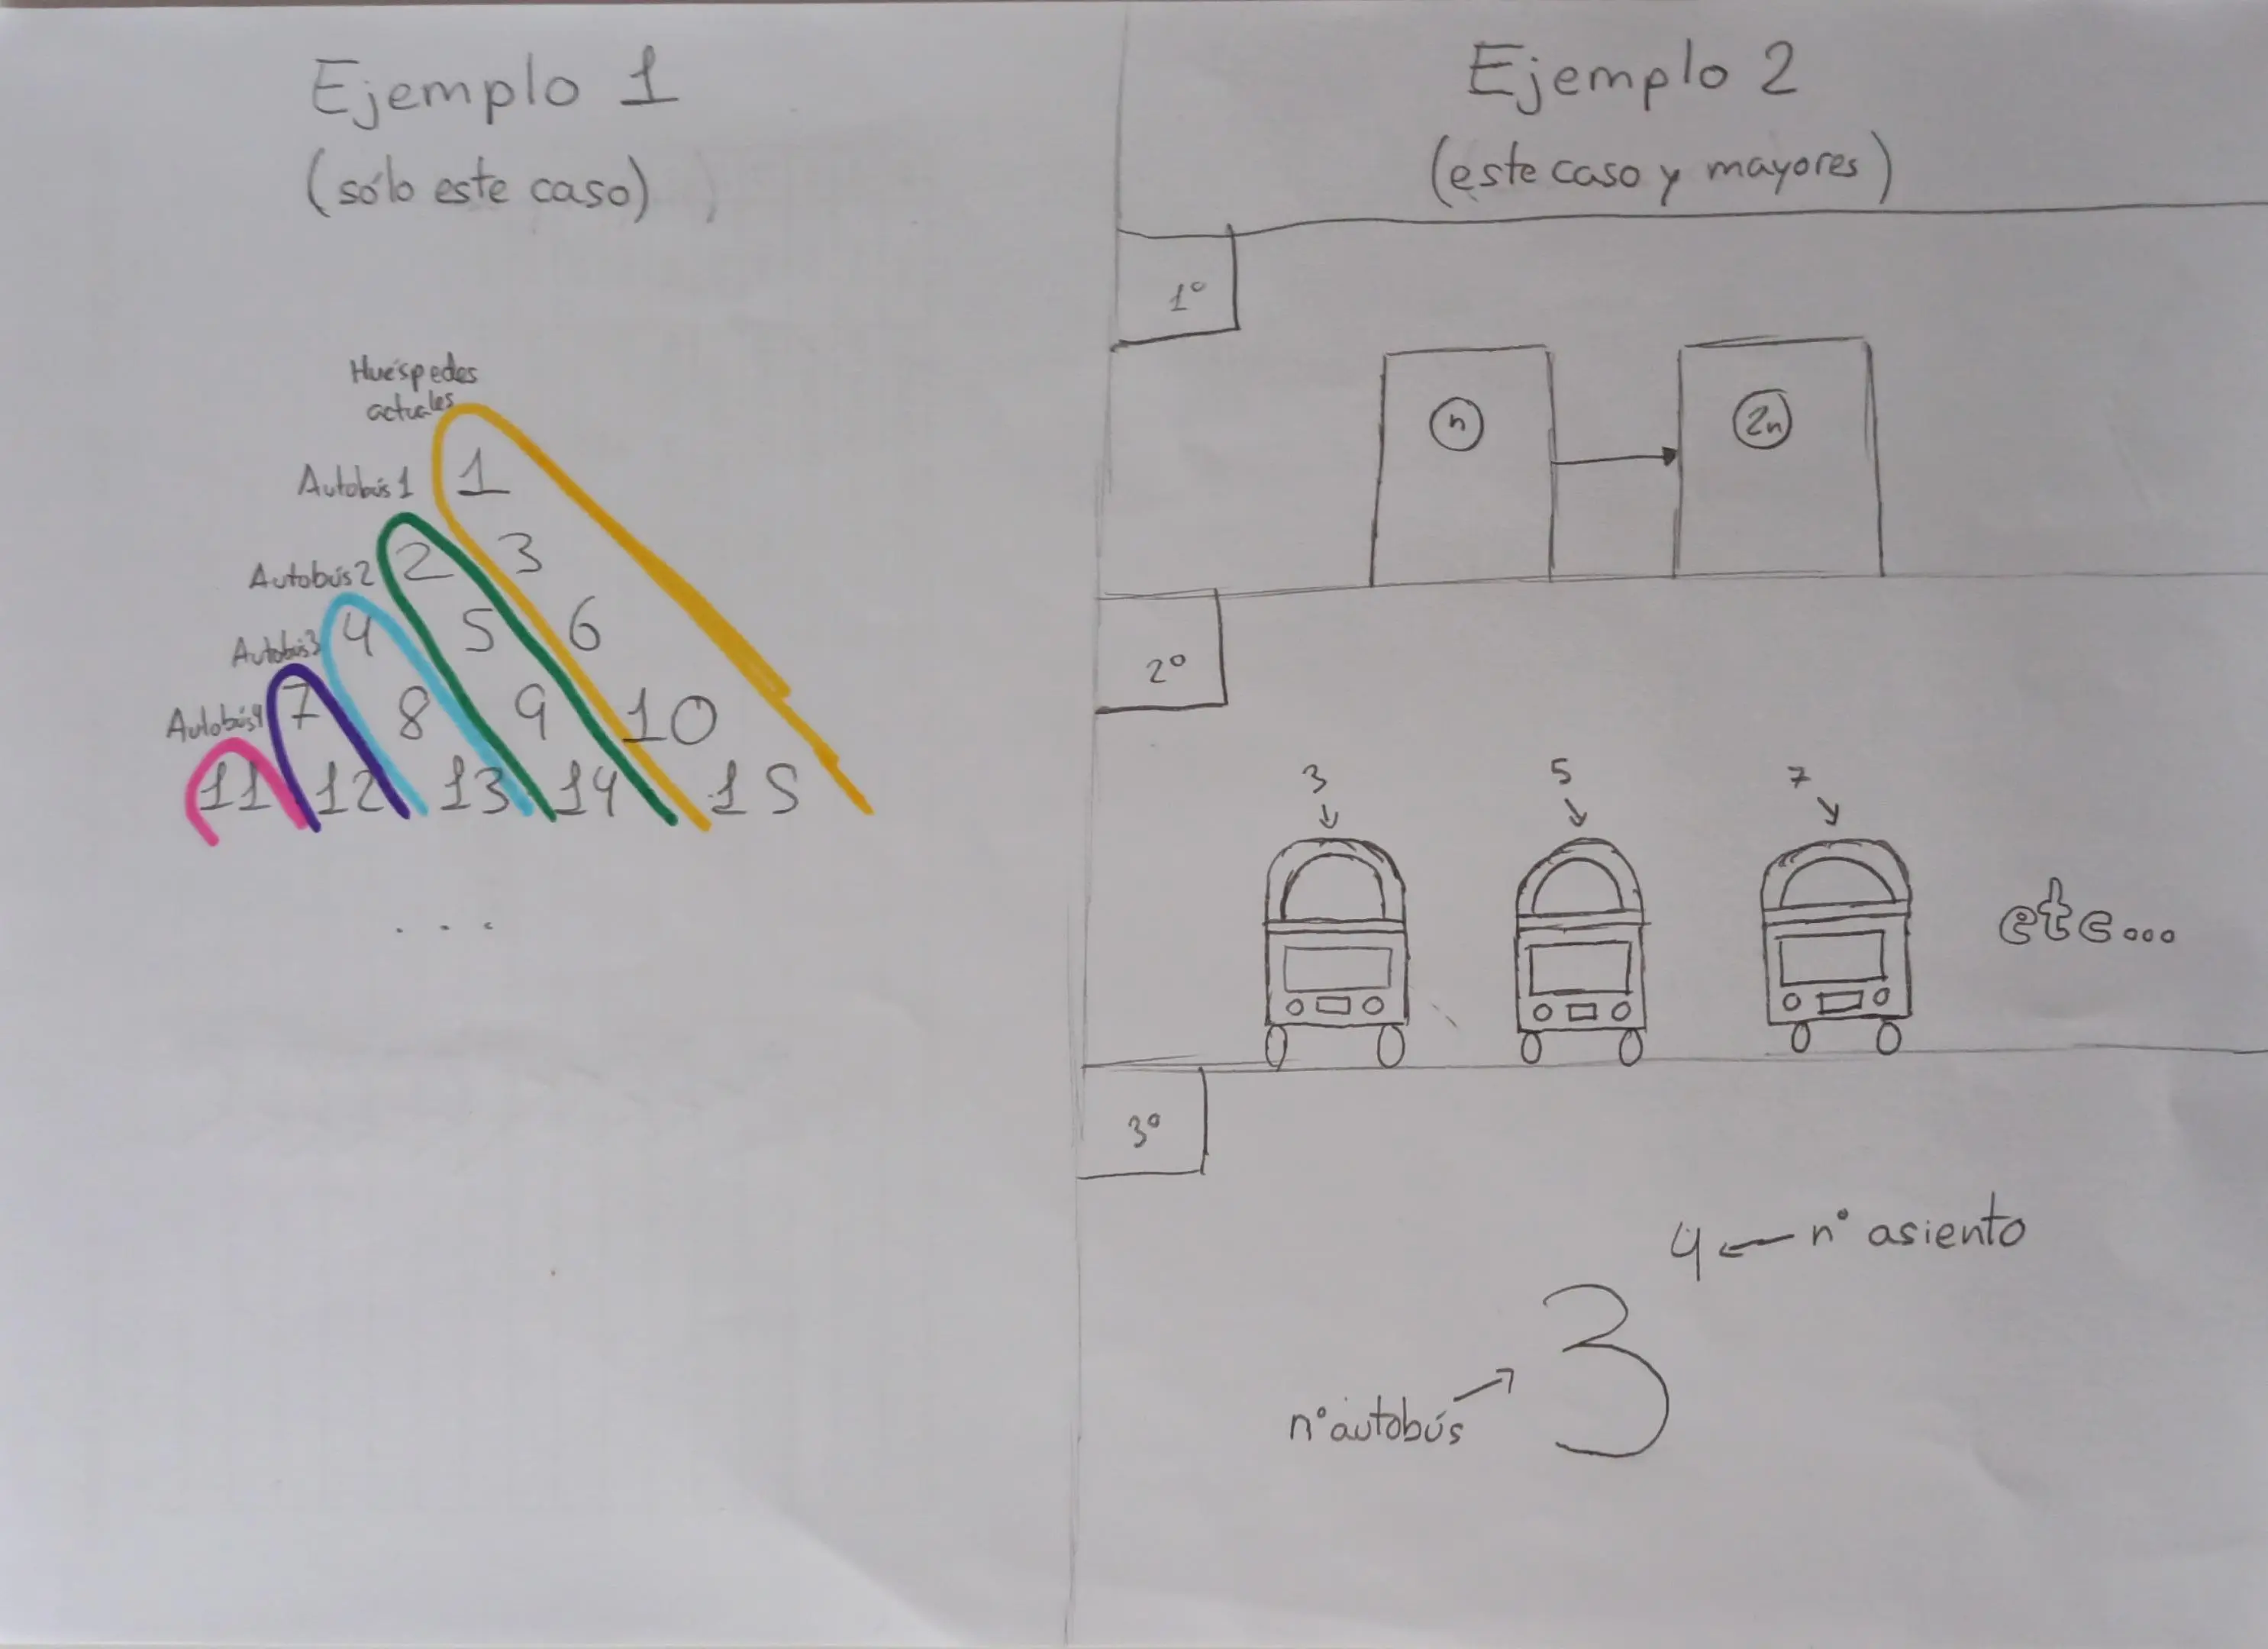 Ejemplo 1
(sólo este caso)
Huéspedes
actuales
Autobús 1
1
Autobús 2
2 3
Autobús 3
4 5 6
Autobús 4
7 8 9 10
11 12 13 14 15
...
Ejemplo 2
(este caso y mayores)
1º
n 2n
2º
3 5 7
etc...
3º
4 ← nº asiento
3
nº autobús